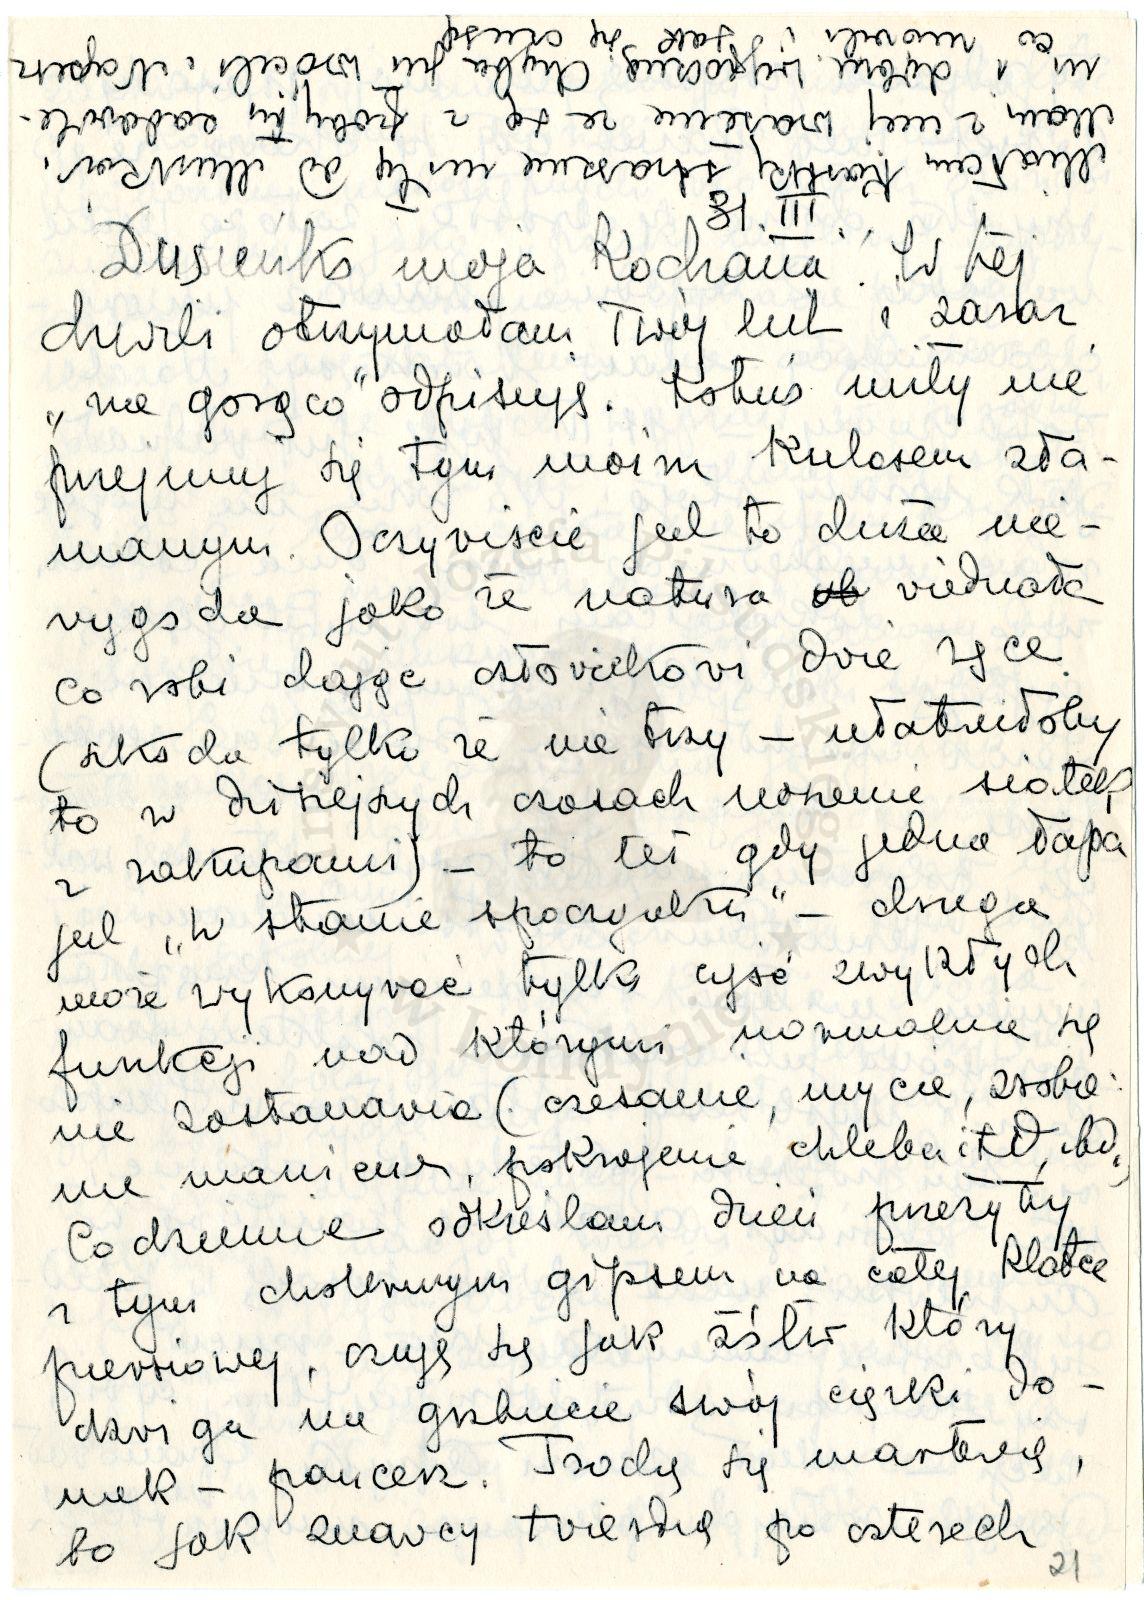 Miałem kartkę strasznie miłą od Muszkos.
Mam z niej wrażenie że są z pobytu zadowole-
ni i dobrze wypoczną. Chyba już wrócili i Napisz
co mówili i jak się czują
18.III.
Dusieńko moja Kochana! W tej
chwili otrzymałam Twój list i zaraz
„na gorąco" odpisuję. Kotuś miły nie
przejmuj się tym moim kulosem zła-
manym. Oczywiście jest to duża nie-
wygoda jako że natura wiedziała
co robi dając człowiekowi dwie ręce
(szkoda tylko że nie trzy – ułatwiłoby
to w dzisiejszych czasach noszenie siatek
z zakupami) – to też gdy jedna łapa
jest „w stanie spoczynku" – druga
może wykonywać tylko część zwykłych
funkcji nad którymi normalnie się
nie zastanawia (czesanie, mycie, zrobie-
nie manicure, pokrojenie chleba itd, itd.)
Codziennie odkreślam dzień przeżyty
z tym cholernym gipsem na całej klatce
piersiowej, czuję się jak żółw który
dźwiga na grzbiecie swój ciężki do-
mek – pancerz. Trochę się martwię,
bo jak znawcy twierdzą po czterech
21
Instytut Józefa Piłsudskiego
w Londynie